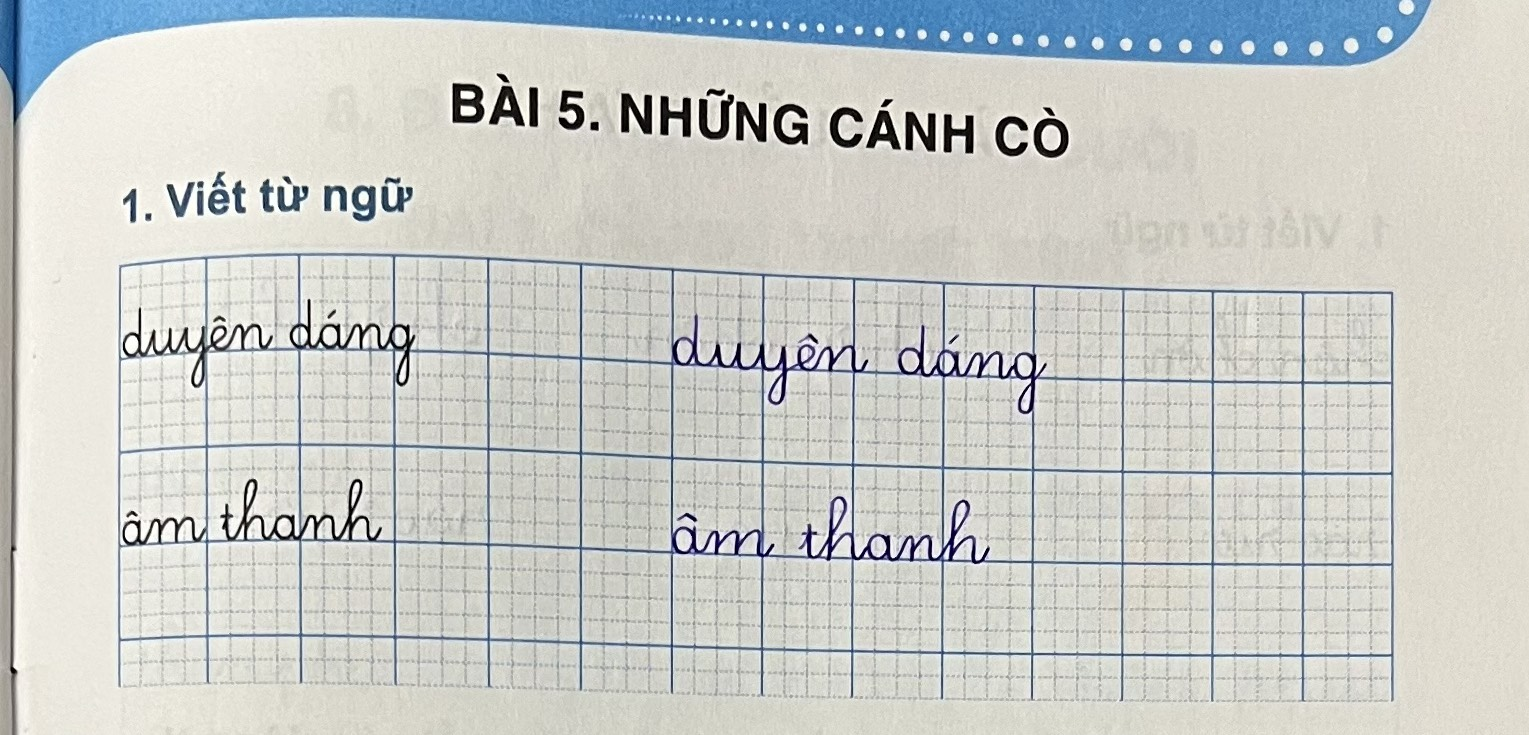 BÀI 5. NHỮNG CÁNH CÒ
1. Viết từ ngữ
duyên dáng duyên dáng
âm thanh âm thanh